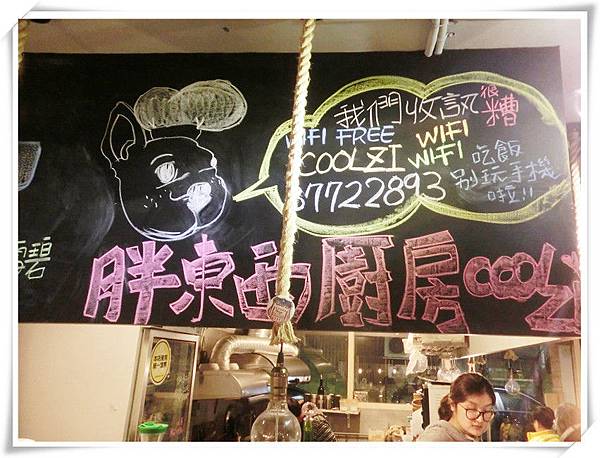 我們收訊很糟
WIFI FREE WIFI
COOLZI WIFI
87722893
吃飯
別玩手機
啦!!
雪碧
胖東西廚房COOLZI